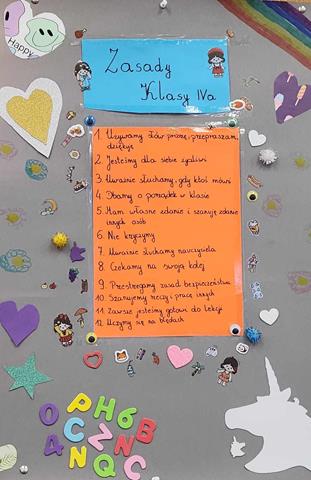 Happy
Zasady
Klasy IVa
1. Używamy słów proszę, przepraszam,
dziękuję
2. Jesteśmy dla siebie życzliwi
3. Uważnie słuchamy, gdy ktoś mówi
4. Dbamy o porządek w klasie
5. Mam własne zdanie i szanuję zdanie
innych osób
6. Nie krzyczymy
7. Uważnie słuchamy nauczyciela
8. Czekamy na swoją kolej
9. Przestrzegamy zasad bezpieczeństwa
10. Szanujemy rzeczy i pracę innych
11. Zawsze jesteśmy gotowi do lekcji
12. Uczymy się na błędach
O P H 6 B
C Z N C
4 N Q